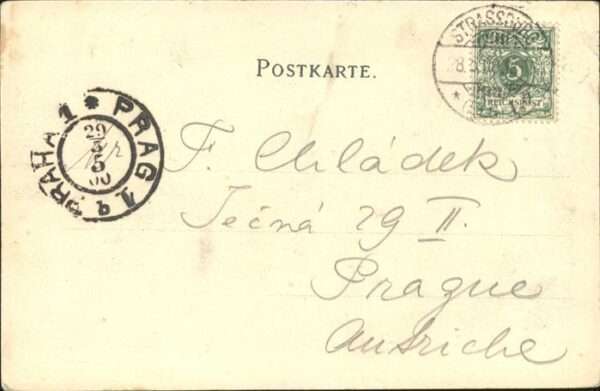 POSTKARTE.
STRASSBURG
5
REICHSPOST
PRAG 1 * PRAHA 1
29
5
00
F. Chládek
Ječná 29 II.
Prague
Autriche